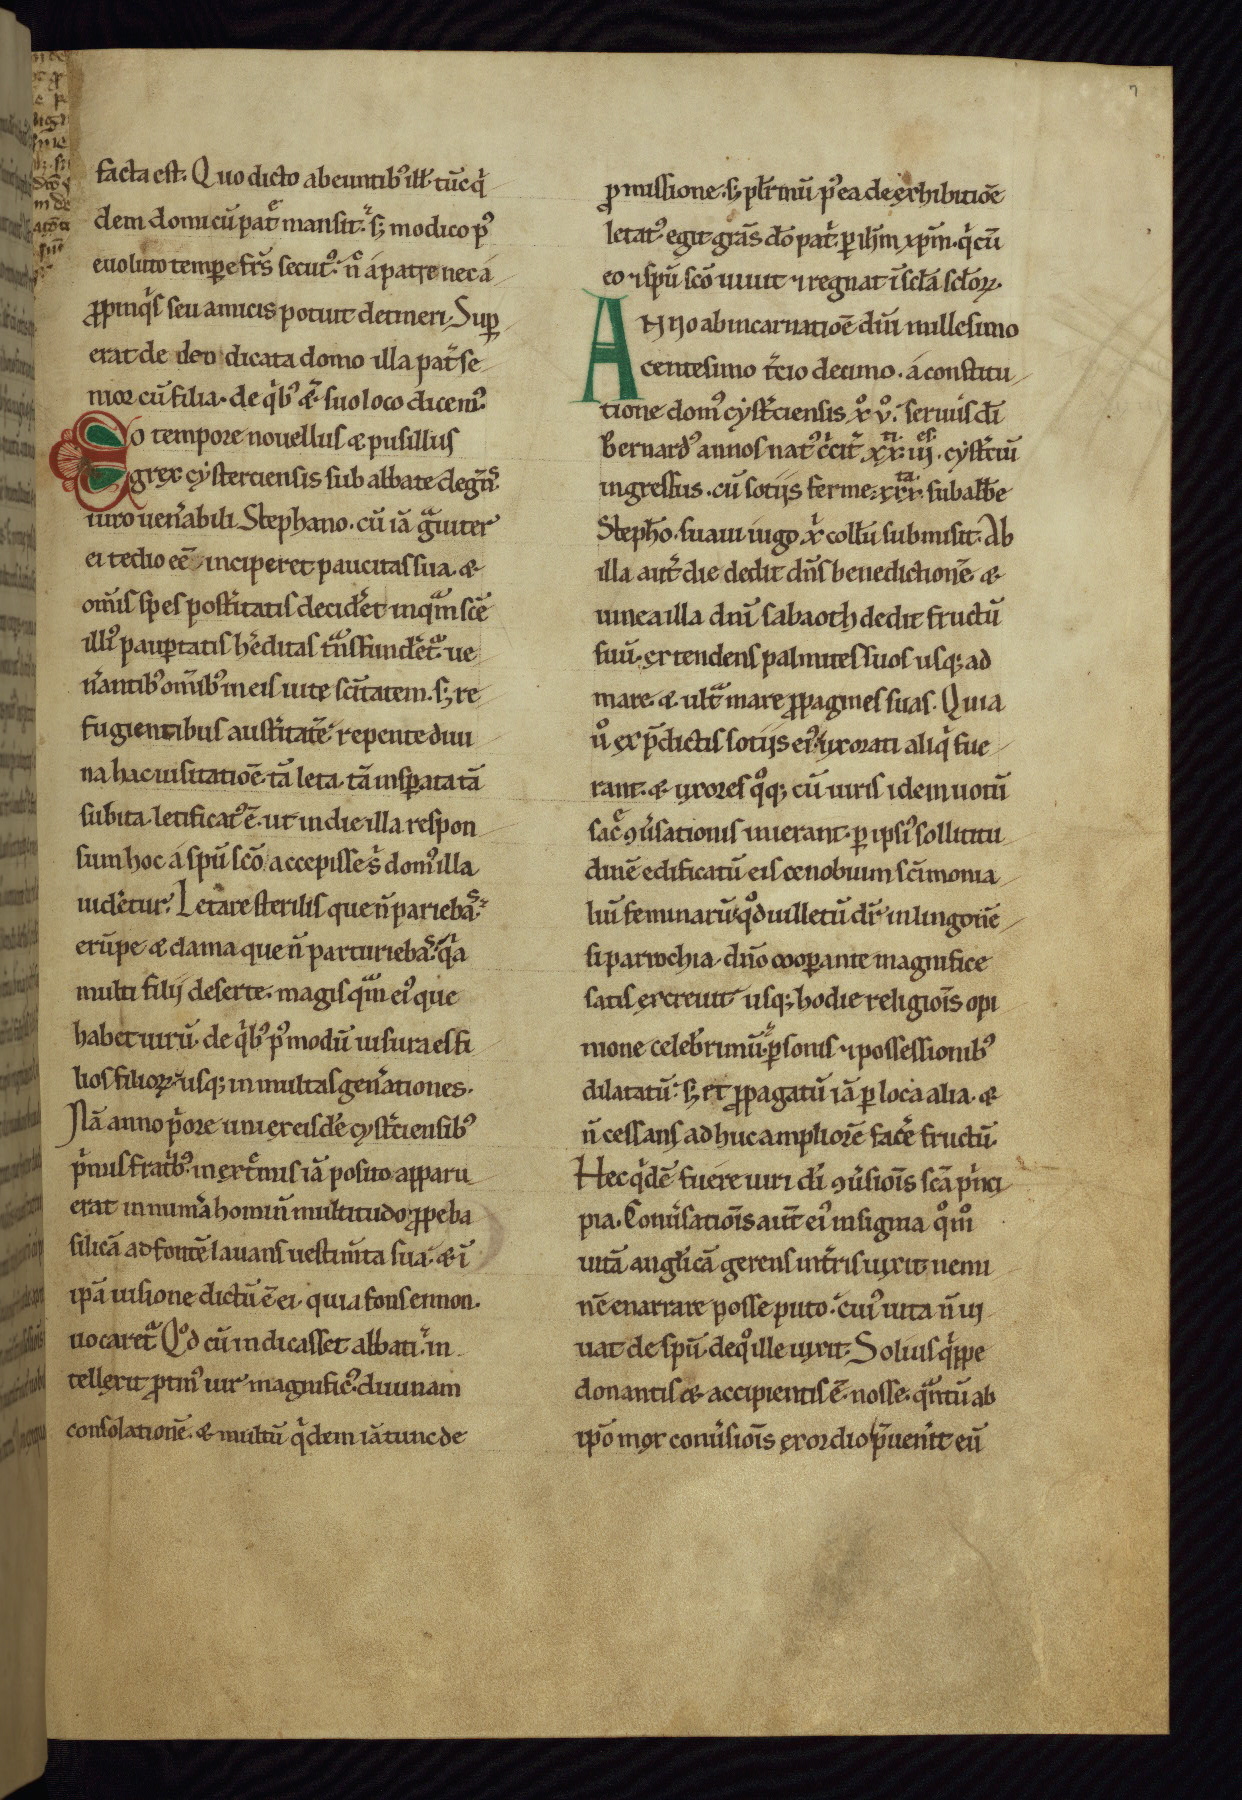 facta est. Quo dicto abeuntibꝰ ill̛. tūc qͥ
dem domi cū patͤ mansit. sꝫ modico pꝰ
euoluto temꝑe fr̄s secutꝰ. n̄ á patre nec á
ꝓpinqͥs seu amicis potuit detineri. Suꝑ
erat de deo dicata domo illa pat̛ se
nior cū filia. de qͥbꝰ ⁊ suo loco dicemꝰ.
Eo tempore nouellus ⁊ pusillus
grex cysterciensis sub abbate degēs
uiro uen̛abili Stephano. cū iā gͣuiter
ei tedio eē inciperet paucitas sua. ⁊
om̄is spes post̛itatis decid̛et in qͣm scē
illiꝰ pauꝑtatis h̛editas tͣnsfundͤetͣ. ue
n̛antibꝰ om̄ibꝰ in eis uite sc̄itatem. sꝫ re
fugientibus aust̛itatē. repente diui
na hac uisitatiōe. tā leta. tā insꝑata tā
subita. letificatꝰ ē. ut in die illa respon
sum hoc á spū scō accepisse s̛ domꝰ illa
uid̛etur. Letare sterilis que n̄ pariebas.
erūpe ⁊ clama que n̄ parturiebas. qͥa
multi filij deserte. magis qͣm eiꝰ que
habet uirū. de qͥbꝰ pꝰmodū uisura es fi
lios filioꝝ. usqꝫ in multas gen̛ationes.
Nā anno pͥore uni ex eisdē cyst̛ciensibꝰ
pͥmus frat̛bꝰ. in extͤmis iā posito apparu
erat innum̛a hominū multitudo ꝓpe ba
silicā ad fontē lauans uestim̄ta sua. ⁊ ī
ipā uisione dictū ē ei. quia fons ennon.
uocaretͣ. Qͦd cū indicasset abbati. in
tellexit ꝓtinꝰ uir magnificꝰ diuinam
consolationē. ⁊ multū qͥdem iā tunc de
ꝓmissione. sꝫ pl̛imū pꝰea de exhibitiōe
letatꝰ egit grās dō pat̛. ꝑ ih̄m xp̄m. qͥ cū
eo ⁊ spū scō uiuit ⁊ regnat ī scl̄a scl̄oꝝ.
ANno ab incarnatiōe dn̄i millesimo
centesimo t̛cio decimo. á constitu
tione domꝰ cyst̛ciensis xͦ.vͦ. seruus dī
Bernardꝰ annos natꝰ c̛cit̛ xx.ti iij.es. cyst̛ciū
ingressus. cū sotijs ferme. xxx.ta sub abb̄e
Steph̄o. suaui iugo xͥ collū submisit. Ab
illa aut̛ die dedit dn̄s benedictionē. ⁊
uinea illa dn̄i sabaoth dedit fructū
suū. extendens palmites suos usqꝫ ad
mare. ⁊ ultͣ mare ꝓpagines suas. Quia
uͦ ex p̄dictis sotijs eiꝰ uxorati aliqͥ fue
rant. ⁊ uxores qͦqꝫ cū uiris idem uotū
sacͤ ꝯưsationis inierant. ꝑ ipsiꝰ sollicitu
dinē edificatū eis cenobium sc̄imonia
liū feminarū. qͦd uilletū dr̄ in lingonē
si parrochia. dn̄o cooꝑante magnifice
satis excreuit. usqꝫ hodie religiōis opi
nione celeb̛rimū. ꝑsonis ⁊ possessionibꝰ
dilatatū. sꝫ et ꝓpagatū iā ꝑ loca alia. ⁊
n̄ cessans adhuc ampliorē facͤe fructū.
Hec qͥdē fuere uiri dī ꝯưsiōis scā pͥnci
pia. Conưsatiōis aut̄ eiꝰ insignia qͦmͦ
uitā angl̛icā gerens int̛ris uixit nemi
nē enarrare posse puto. cuiꝰ uita n̄ ui
uat de spū. de qͦ ille uixit. Solius qͥppe
donantis ⁊ accipientis ē nosse. qͣntū ab
ipō mox conưsiōis exordio p̄uen̛it eū